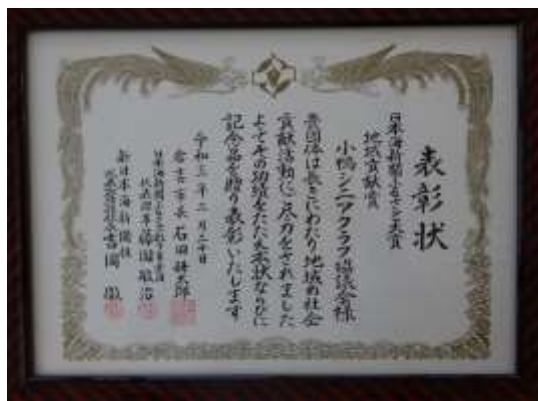 表彰状
日本海新聞ふるさと大賞
地域貢献賞
小鴨シニアクラブ協議会様
貴団体は長きにわたり地域の社会
貢献活動に尽力をされました
よってその功績をたたえ本状ならびに
記念品を贈り表彰いたします
令和三年二月二十日
倉吉市長 石田耕太郎
日本海新聞ふるさと大賞
新日本海新聞社